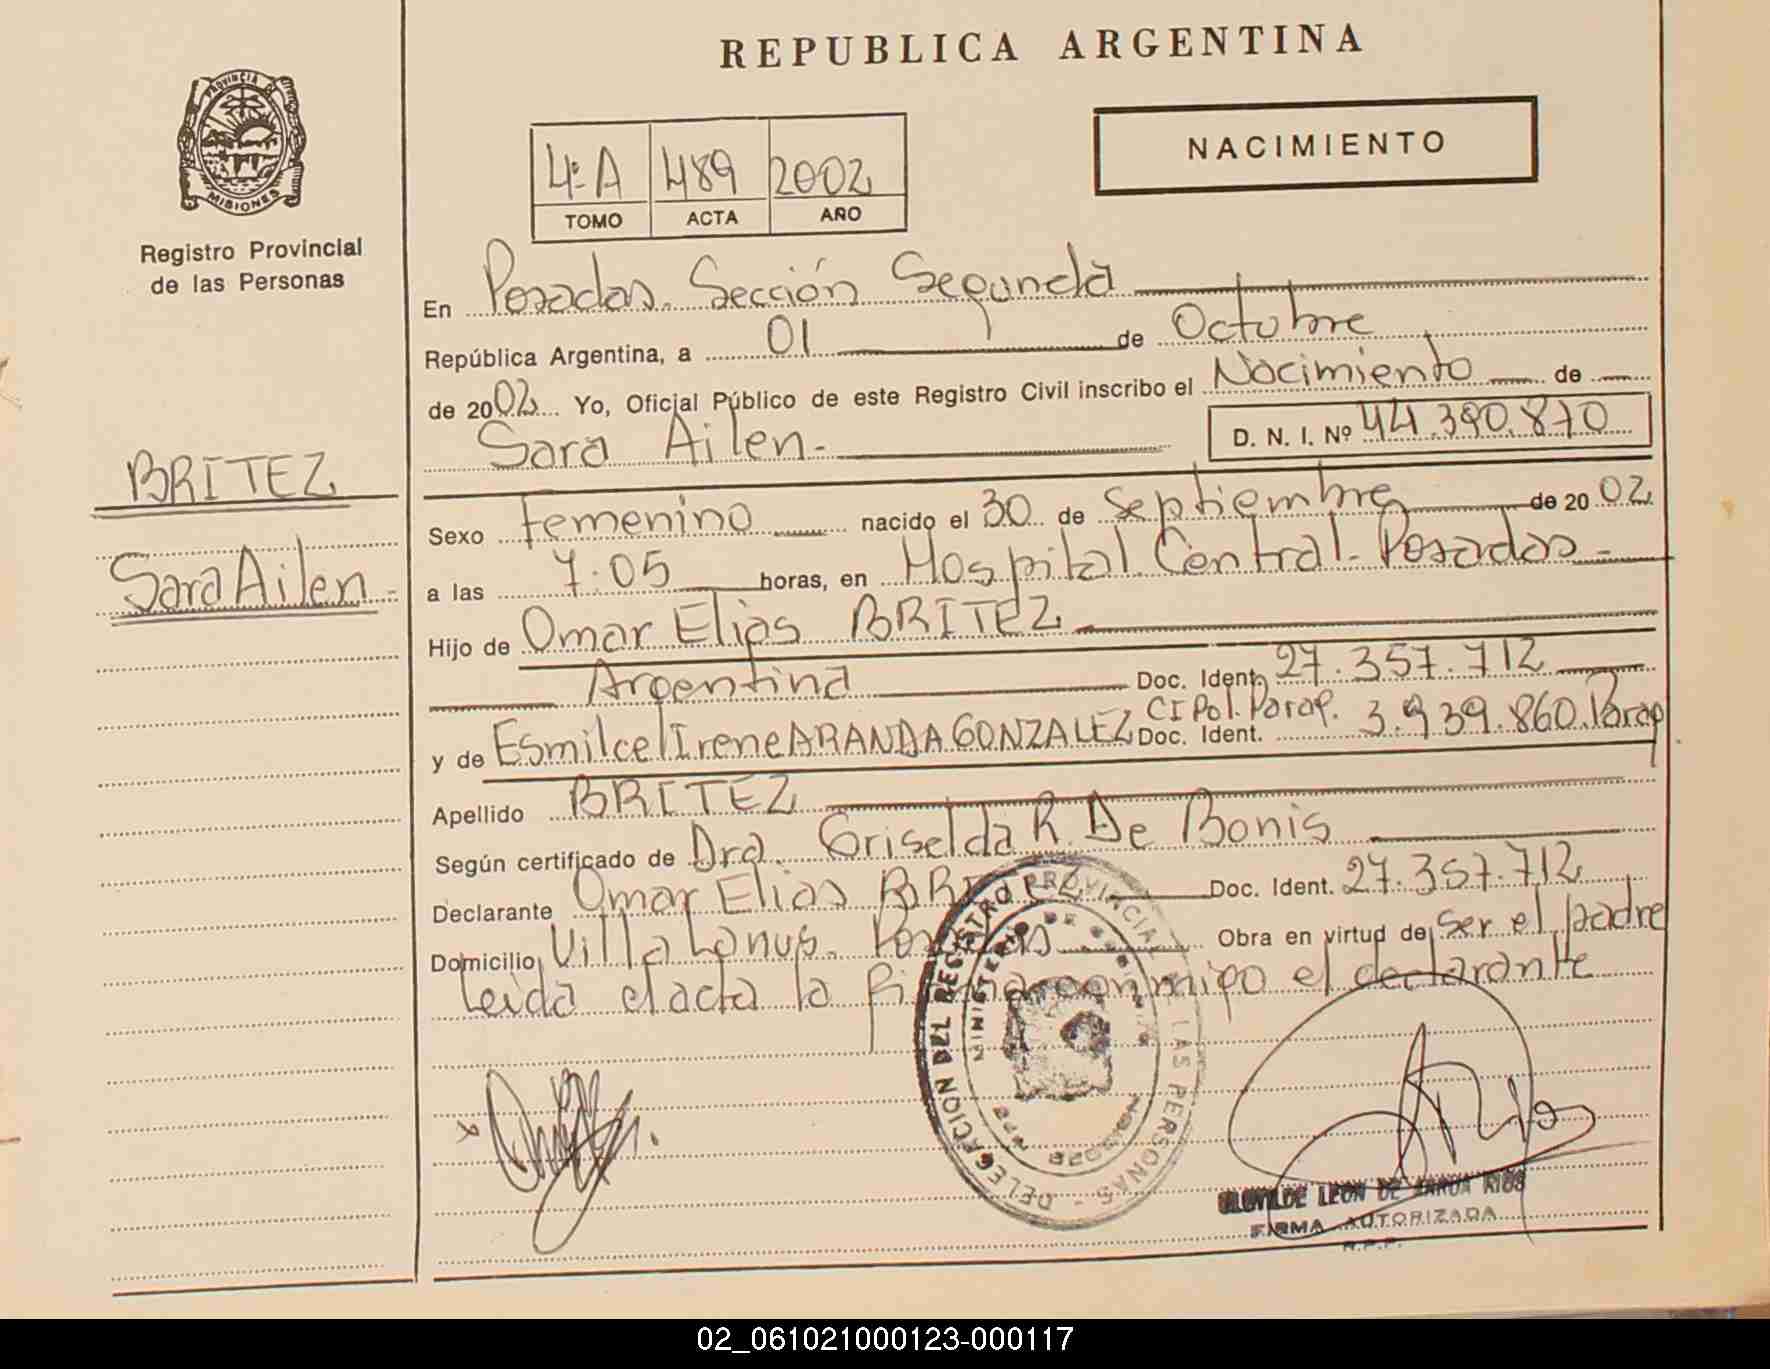 REPUBLICA ARGENTINA
PROVINCIA DE
MISIONES
Registro Provincial
de las Personas
NACIMIENTO
4º A 489 2002
TOMO ACTA AÑO
En Posadas. Sección Segunda
República Argentina, a 01 de Octubre
de 2002 Yo, Oficial Público de este Registro Civil inscribo el Nacimiento de
Sara Ailen.- D. N. I. Nº 44.390.870
BRITEZ
Sara Ailen -
Sexo Femenino nacido el 30 de Septiembre de 2002
a las 7:05 horas, en Hospital Central - Posadas -
Hijo de Omar Elias BRITEZ
Argentina Doc. Ident. 27.357.712
CI Pol. Parag.
y de Esmilce Irene ARANDA GONZALEZ Doc. Ident. 3.939.860. Parag
Apellido BRITEZ
Según certificado de Dra. Griselda R. De Bonis
Declarante Omar Elias BRITEZ Doc. Ident. 27.357.712
Domicilio Villa Lanus. Posadas Obra en virtud de ser el padre
Leida el acta la firma conmigo el declarante
DELEGACION DEL REGISTRO PROVINCIAL DE LAS PERSONAS -
MINISTERIO DE GOBIERNO
LEON DE RIOS
FIRMA AUTORIZADA
R.P.P.
02_061021000123-000117